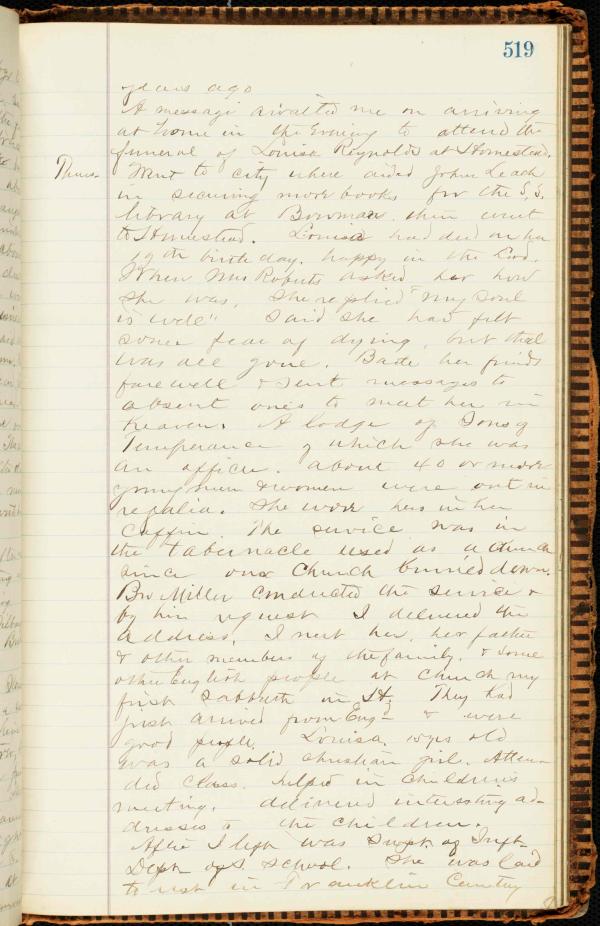 519
years ago
A message awaited me on arriving
at home in the Evening to attend the
funeral of Louisa Reynolds at Homestead.
Thurs. Went to city where aided John Leach
in securing more books for the S.S.
library at Bowman. then went
to Homestead. Louisa had died on her
19th birthday. happy in the Lord.
When Mrs Roberts asked her how
she was, she replied "my soul
is well" Said she had felt
some fear of dying, but that
was all gone. Bade her friends
farewell & sent messages to
absent ones to meet her in
heaven. A lodge of Sons of
Temperance of which she was
an officer. about 40 or more
young men & women were out in
regalia. She wore hers in her
Coffin. The service was in
the tabernacle used as a Church
since our Church burned down.
Bro Miller conducted the service &
by his request I delivered the
address. I met her, her father
& other members of the family, & some
other English people at church my
first Sabbath in H. They had
just arrived from Eng- & were
good people. Louisa, yrs old
was a solid christian girl. Atten-
ded Class. helped in children's
meeting. delivered interesting ad-
dresses to the children.
After I left was Supt of Inft
Dept of S. School. She was laid
to rest in Franklin Cemetery